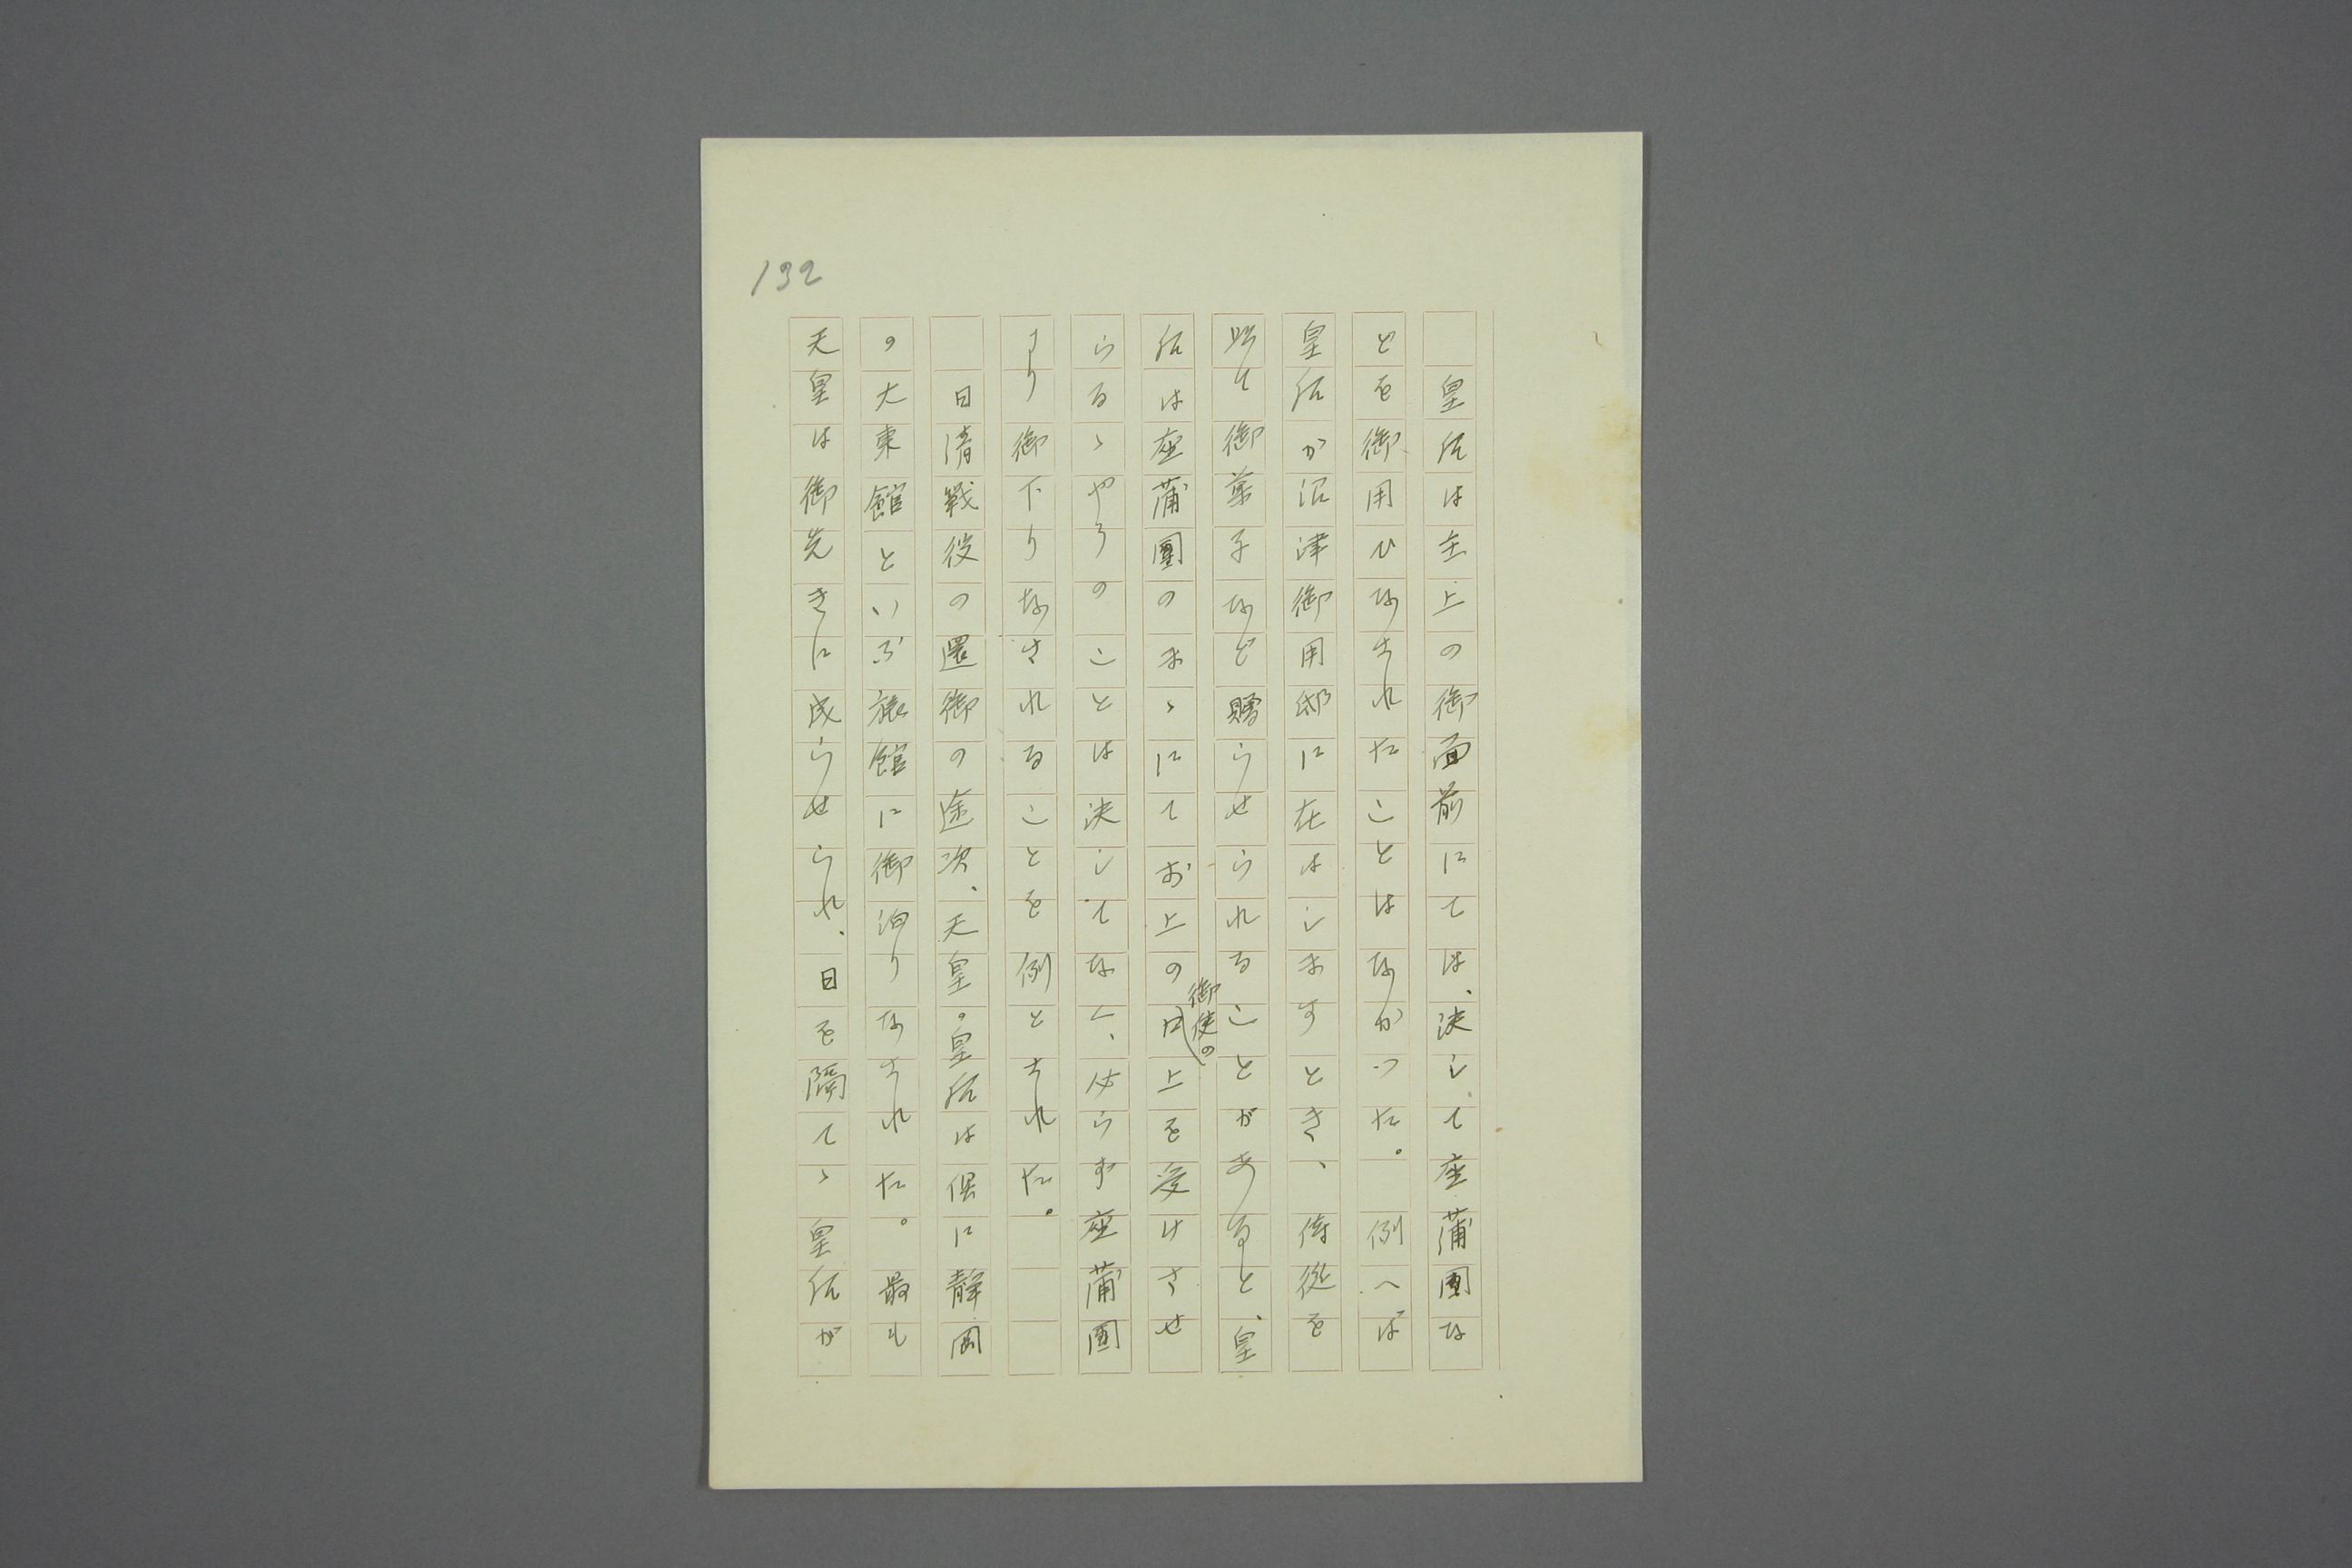 132
皇后は主上の御面前にては、決して座蒲團な
どを御用ひなされたことはなかつた。例へば
皇后が沼津御用邸に在はしますとき、侍從を
貽て御菓子など贈らせられることがあると、皇
后は座蒲團のまゝにてお上の御使の口上を受けさせ
らるゝやうのことは決してなく、必らず座蒲團
より御下りなされることを例とされた。
日清戰役の還御の途次、天皇。皇后は倶に靜岡
の大東館といふ旅館に御泊りなされた。最も
天皇は御先きに成らせられ、日を隔てゝ皇后が